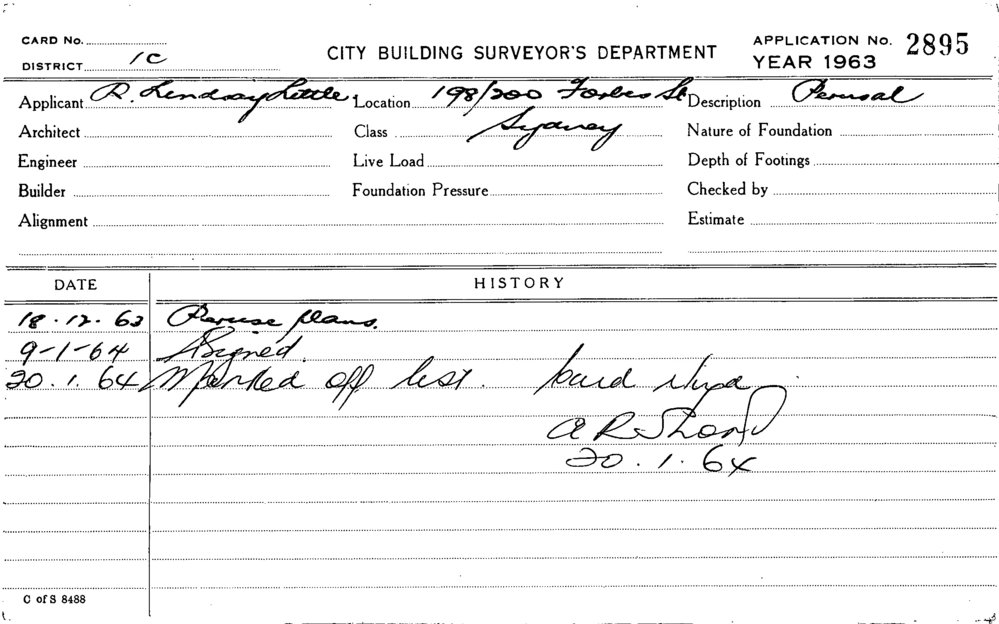 CARD No.
DISTRICT 1C
CITY BUILDING SURVEYOR'S DEPARTMENT
APPLICATION No. 2895
YEAR 1963
Applicant R. Lindsay Little Location 198/200 Forbes St Description Perusal
Architect Class Sydney Nature of Foundation
Engineer Live Load Depth of Footings
Builder Foundation Pressure Checked by
Alignment Estimate
DATE HISTORY
18.12.63 Peruse plans.
9-1-64 Signed.
20.1.64 Marked off list. Card
20.1.64
C of S 8488